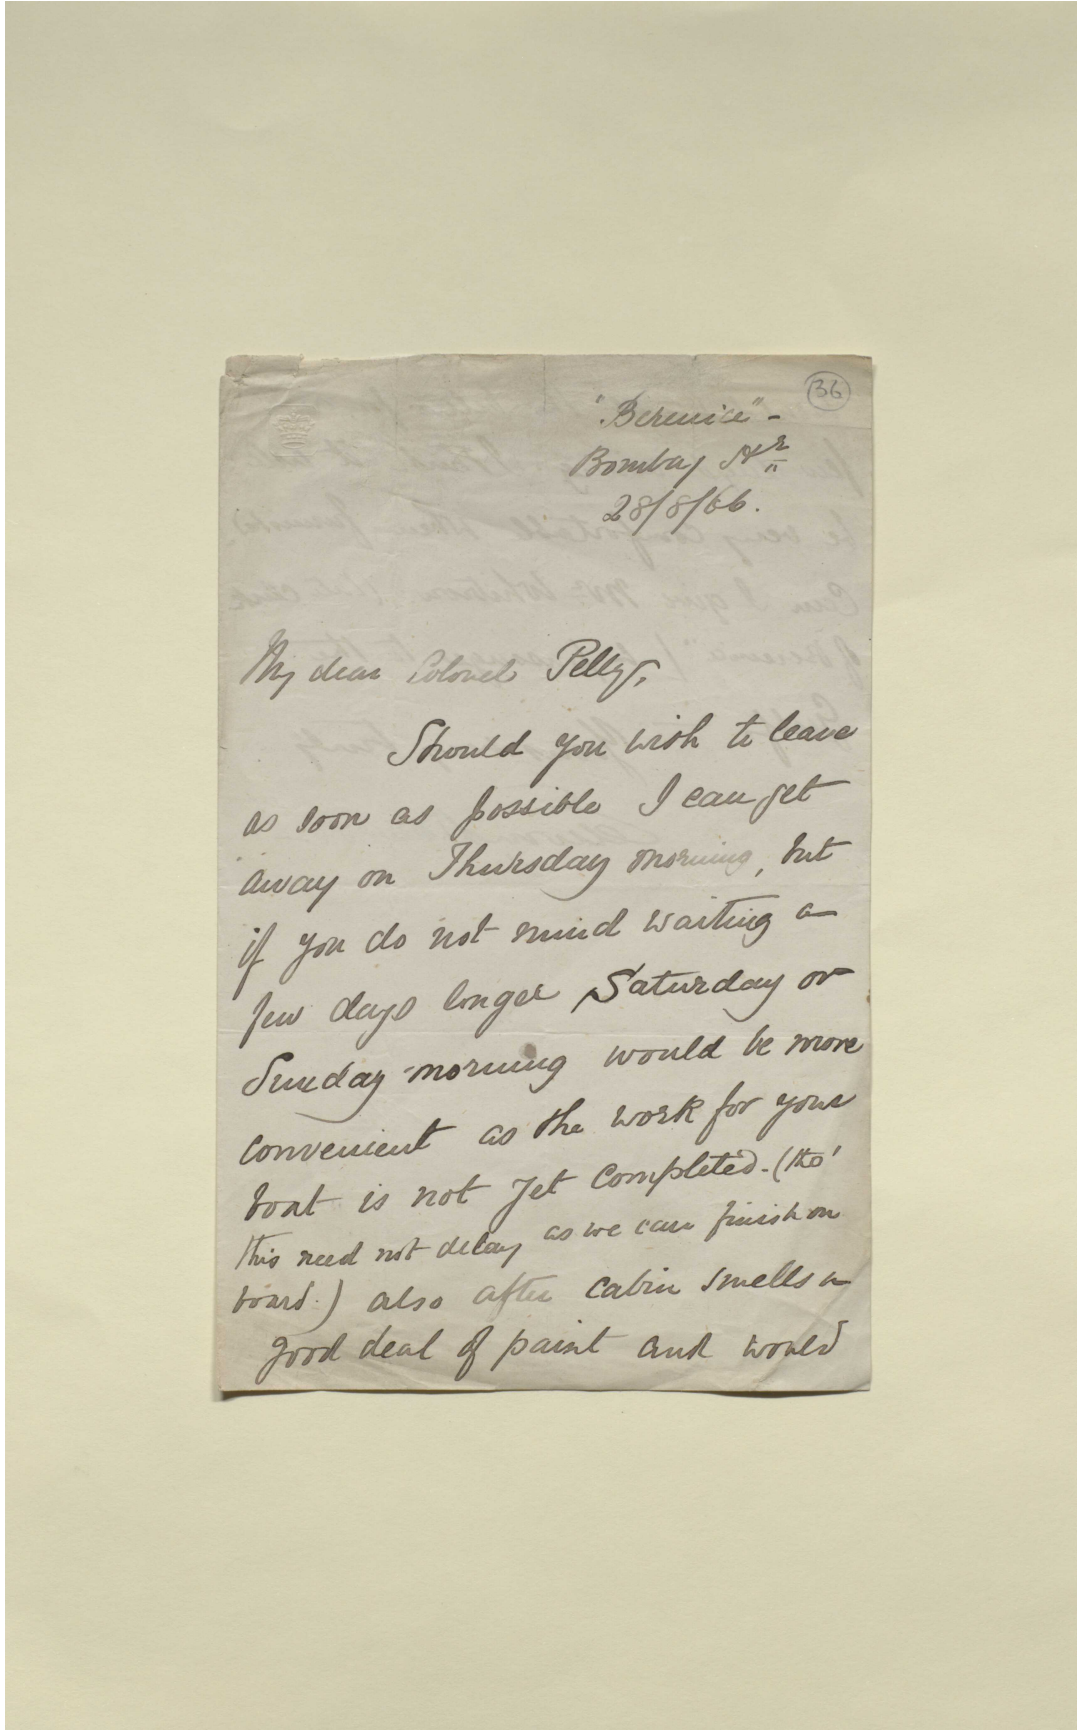 36
"Berenice" -
Bombay Hr
28/8/66.
My dear Colonel Pelly,
Should you wish to leave
as soon as possible I can get
away on Thursday morning, but
if you do not mind waiting a
few days longer Saturday or
Sunday morning would be more
convenient as the work for your
boat is not yet completed. (tho'
this need not delay as we can finish on
board.) also after cabin smells a
good deal of paint and would